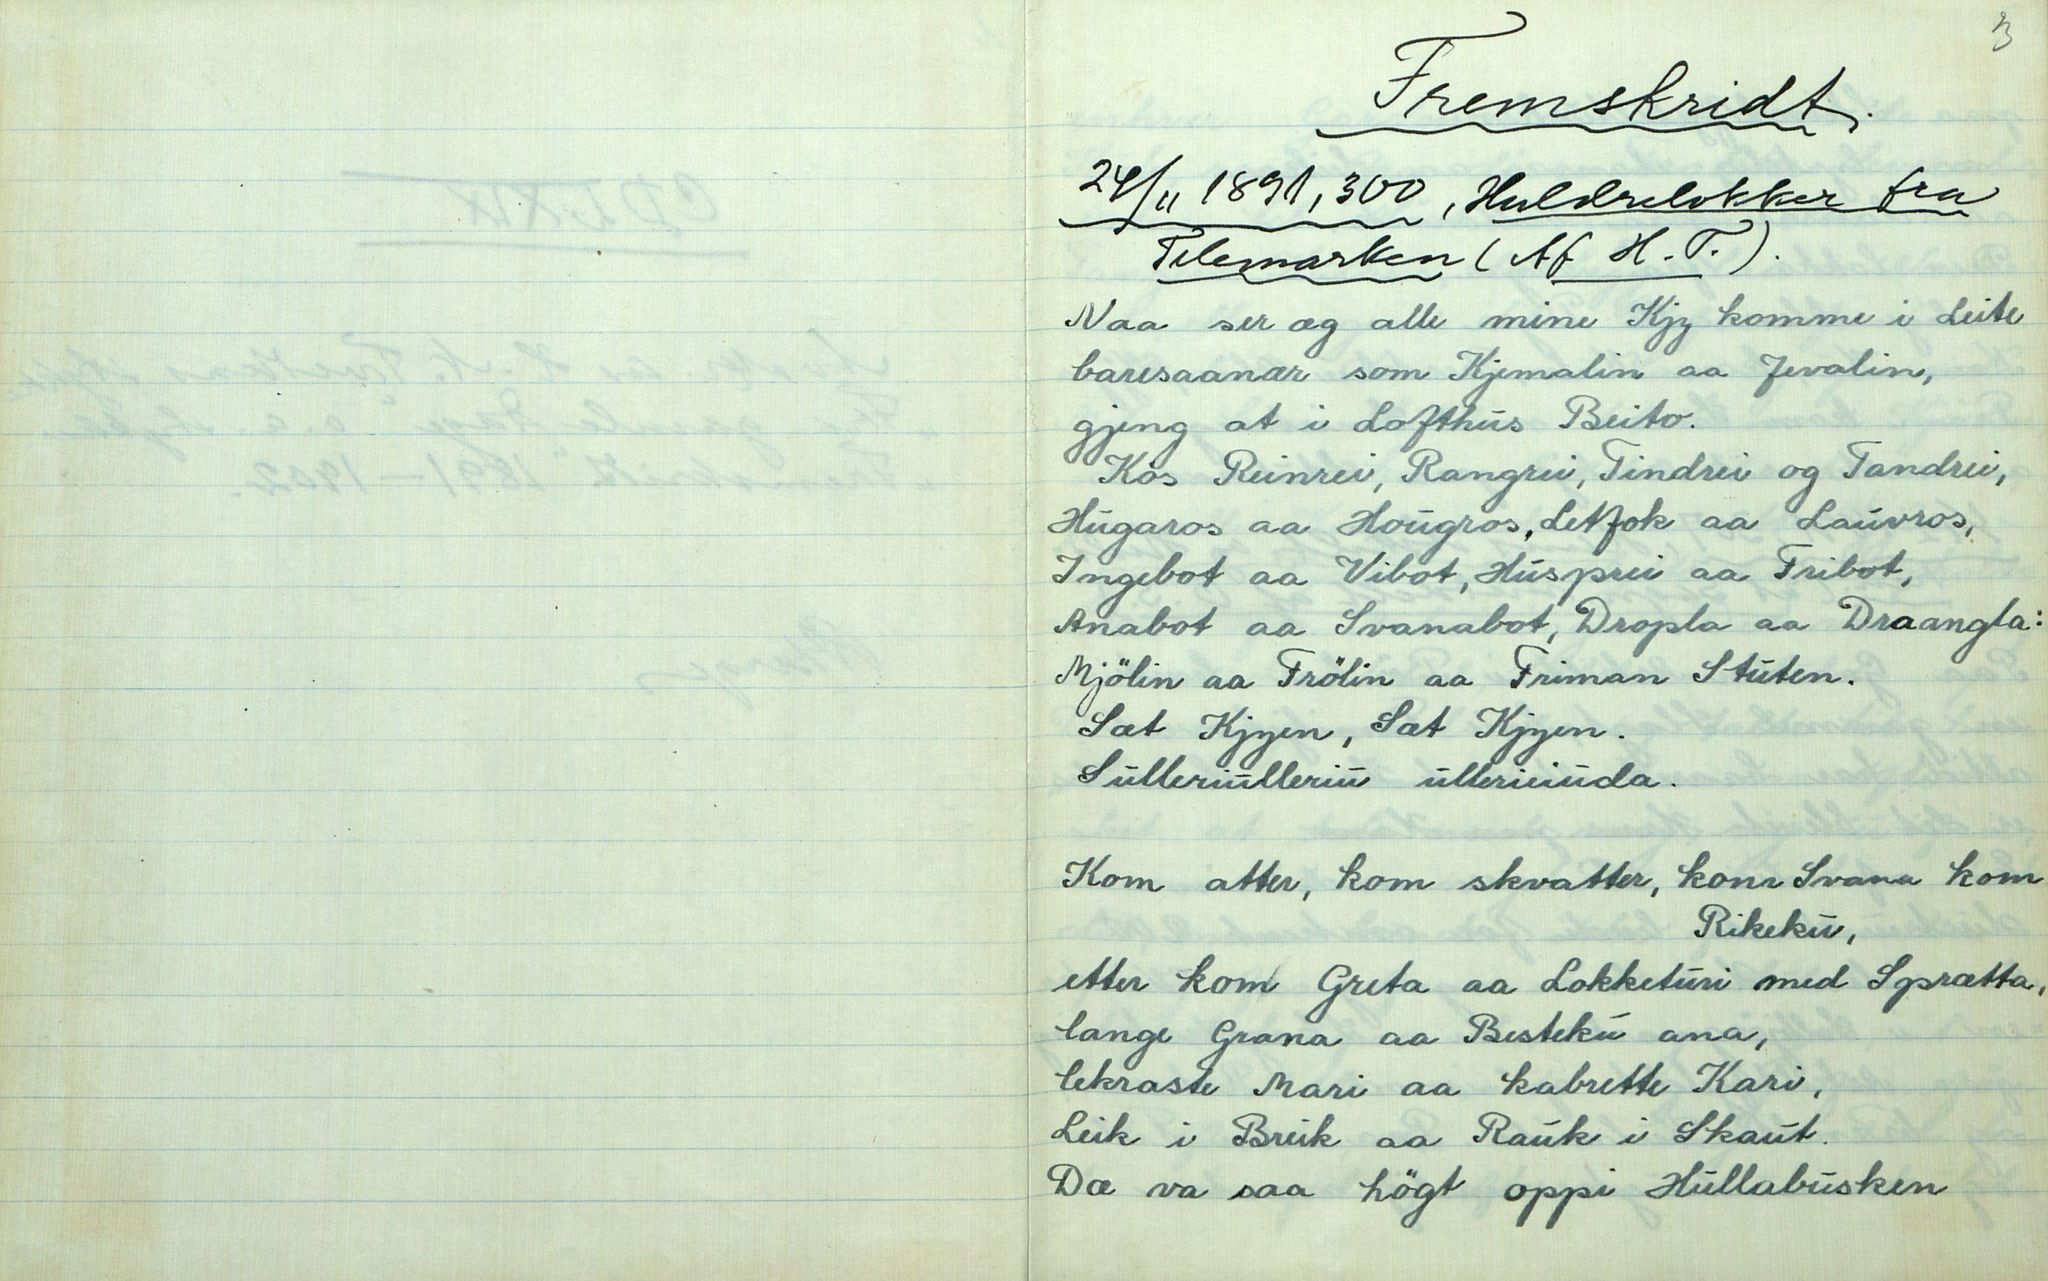 3
Fremskridt.
24/11 1891, 300, Huldrelokker fra
Telemarken (Af H. T.).
Naa ser æg alle mine Kjy komme i Leite
baresaanær som Kjemalin aa Jevalin,
gjeng at i Lofthus Beito.
Kos Reinrei, Rangrei, Tindrei og Tandrei,
Hugaros aa Hougros, Letfok aa Lauvros,
Ingebot aa Vibot, Husprei aa Fribot,
Anabot aa Svanabot, Dropla aa Draangla:
Mjölin aa Frölin aa Friman Stuten.
Sæt Kjyen, Sæt Kjyen.
Sulleriulleriu ullerieiuda.
Kom atter, kom skvatter, kom Svana kom
Rikeku,
etter kom Greta aa Lokketuri med Sprætta,
lange Grana aa Besteku ana,
lekraste Mari aa kabrette Kari,
Leik i Breik aa Rauk i Skaut.
Dæ va saa högt oppi Hullabusken